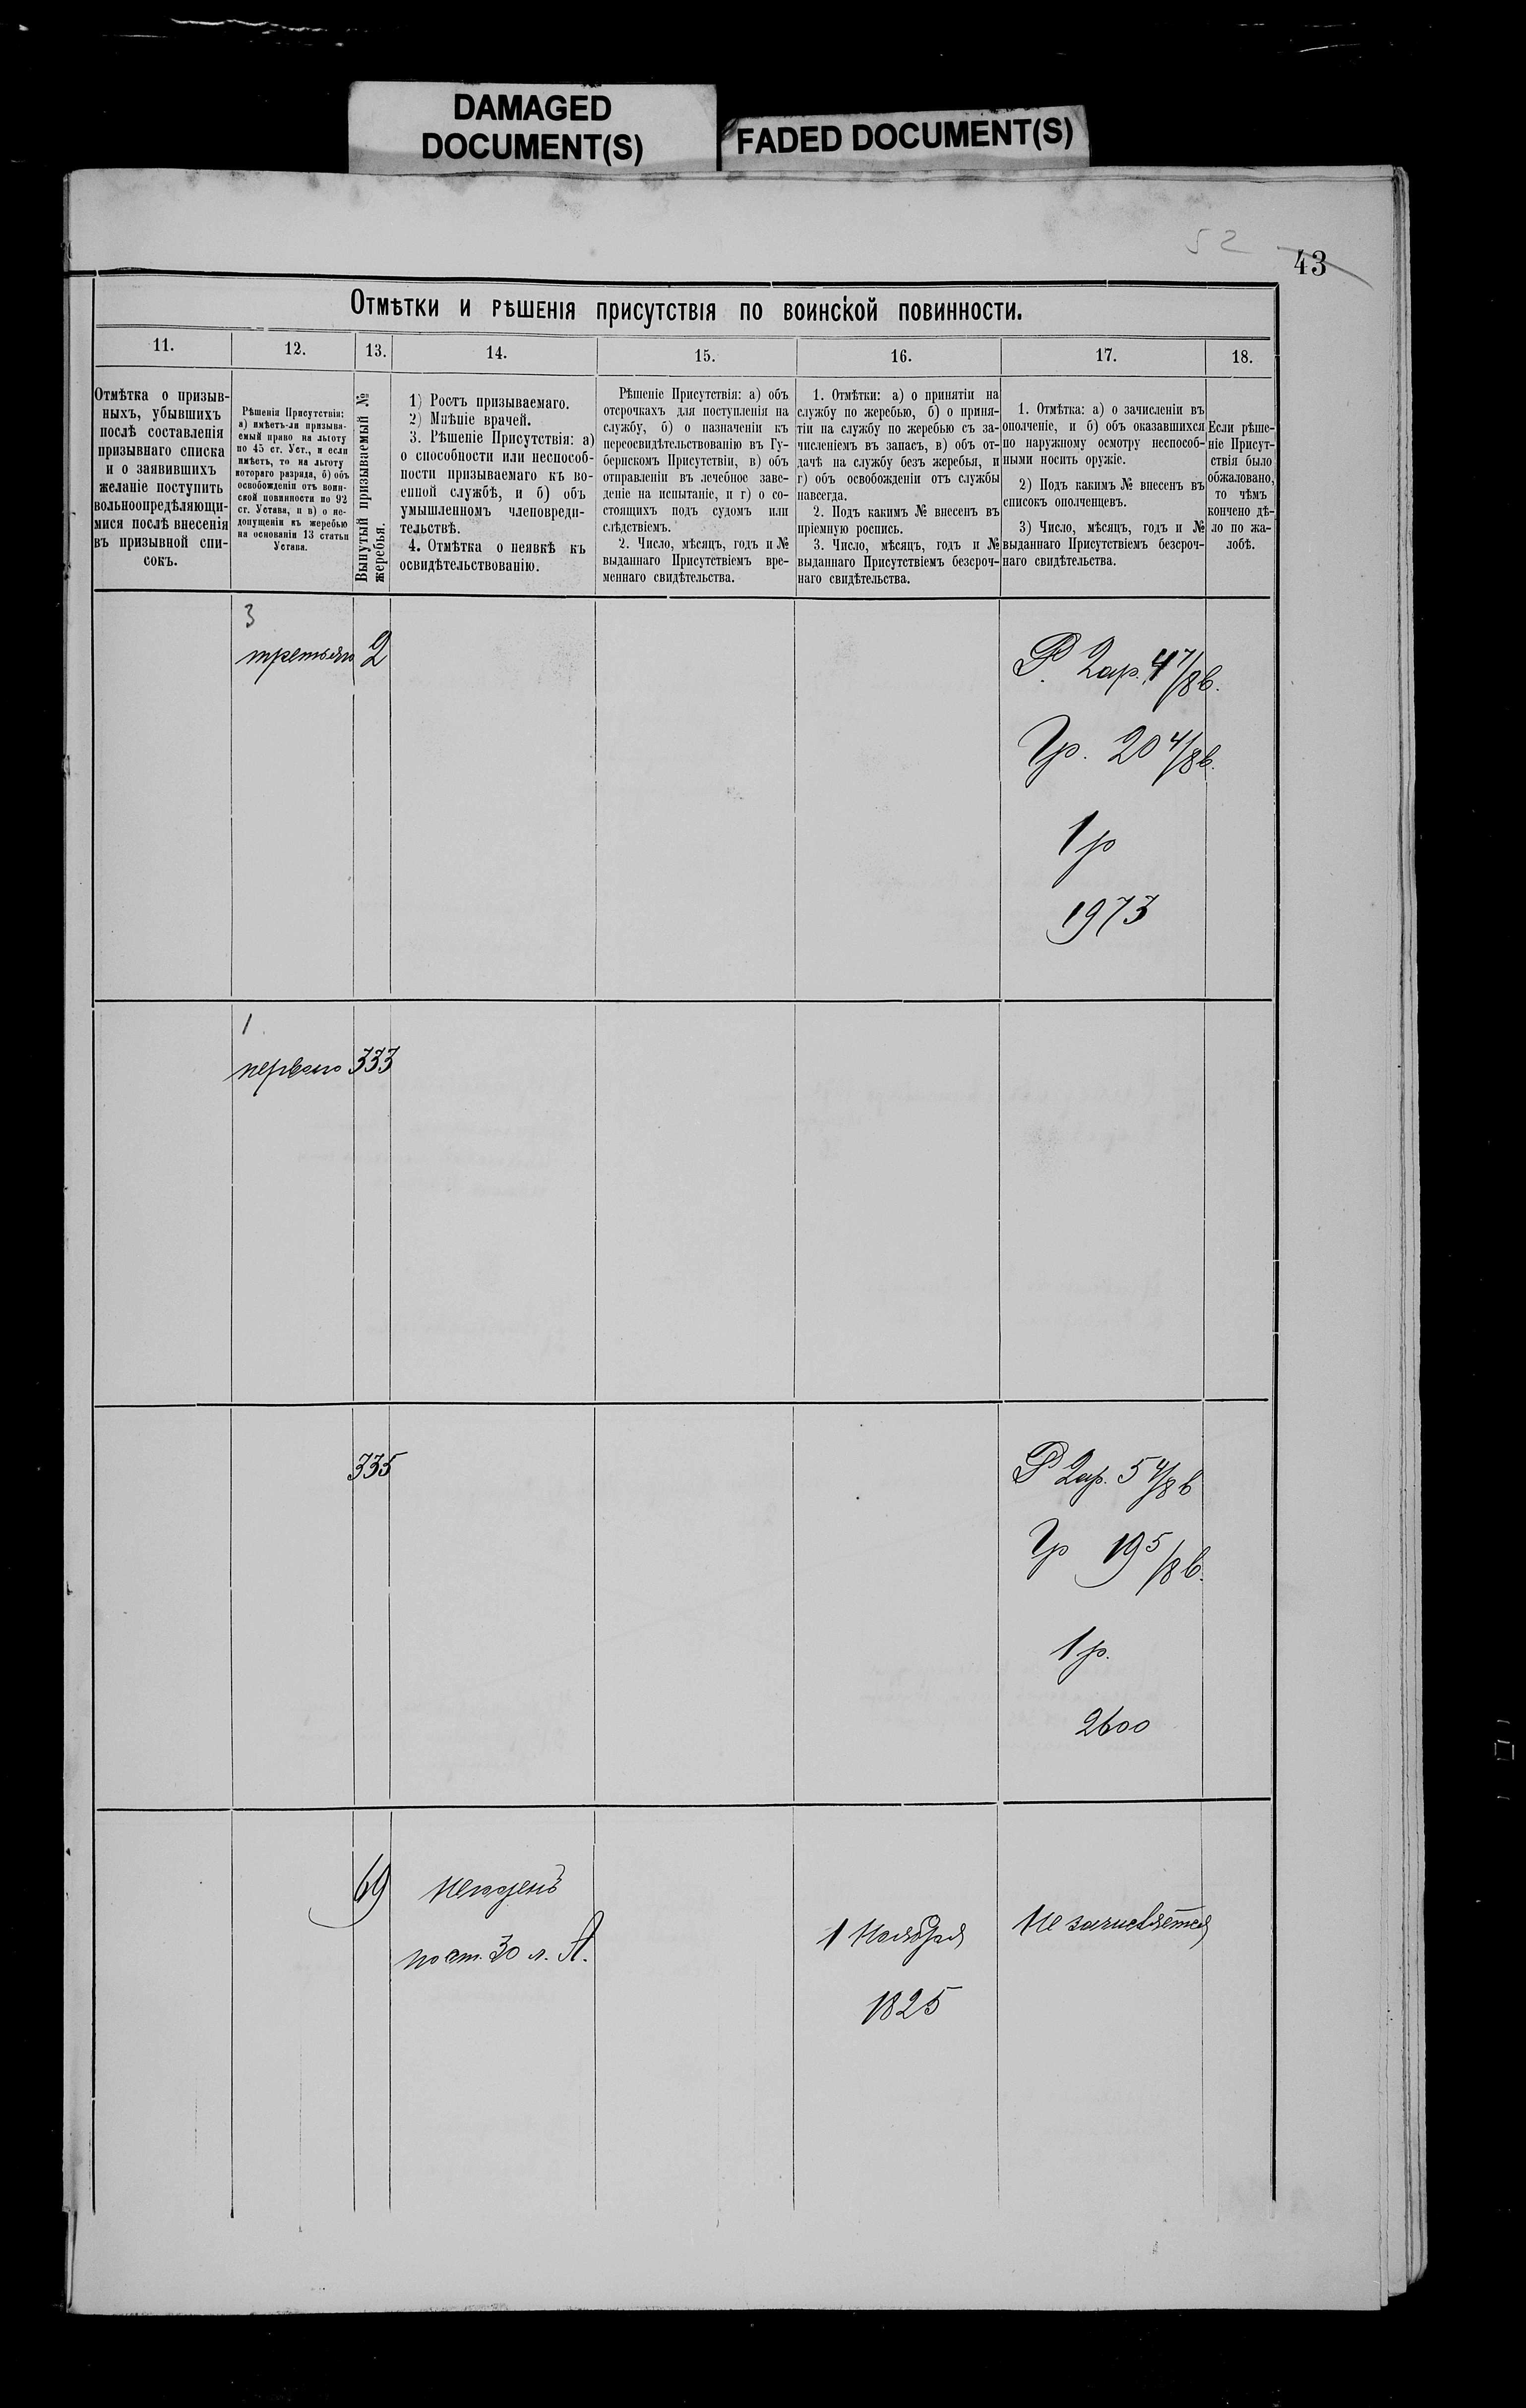 DAMAGED
DOCUMENT(S)
FADED DOCUMENT(S)
52
43
Отмѣтки и рѣшенія присутствія по воинской повинности.
11.
12.
13.
14.
15.
16.
17.
18.
Отмѣтка о призыв-
ныхъ, убывшихъ
послѣ составленія
призывнаго списка
и о заявившихъ
желаніе поступить
вольноопредѣляющи-
мися послѣ внесенія
въ призывной спи-
сокъ.
Рѣшенія Присутствія:
а) имѣетъ-ли призыва-
емый право на льготу
по 45 ст. Уст., и если
имѣетъ, то на льготу
котораго разряда, б) объ
освобожденіи отъ воин-
ской повинности по 92
ст. Устава, и в) о не-
допущеніи къ жеребью
на основаніи 13 статьи
Устава.
Вынутый призываемый №
жеребья.
1) Ростъ призываемаго.
2) Мнѣніе врачей.
3. Рѣшеніе Присутствія: а)
о способности или неспособ-
ности призываемаго къ во-
енной службѣ, и б) объ
умышленномъ членовреди-
тельствѣ.
4. Отмѣтка о неявкѣ къ
освидѣтельствованію.
Рѣшеніе Присутствія: а) объ
отсрочкахъ для поступленія на
службу, б) о назначеніи къ
переосвидѣтельствованію въ Гу-
бернскомъ Присутствіи, в) объ
отправленіи въ лечебное заве-
деніе на испытаніе, и г) о со-
стоящихъ подъ судомъ или
слѣдствіемъ.
2. Число, мѣсяцъ, годъ и №
выданнаго Присутствіемъ вре-
меннаго свидѣтельства.
1. Отмѣтки: а) о принятіи на
службу по жеребью, б) о приня-
тіи на службу по жеребью съ за-
численіемъ въ запасъ, в) объ от-
дачѣ на службу безъ жеребья, и
г) объ освобожденіи отъ службы
навсегда.
2. Подъ какимъ № внесенъ въ
пріемную роспись.
3. Число, мѣсяцъ, годъ и №
выданнаго Присутствіемъ безсроч-
наго свидѣтельства.
1. Отмѣтка: а) о зачисленіи въ
ополченіе, и б) объ оказавшихся
по наружному осмотру неспособ-
ными носить оружіе.
2) Подъ какимъ № внесенъ въ
списокъ ополченцевъ.
3) Число, мѣсяцъ, годъ и №
выданнаго Присутствіемъ безсроч-
наго свидѣтельства.
Если рѣше-
ніе Присут-
ствія было
обжаловано,
то чѣмъ
кончено дѣ-
ло по жа-
лобѣ.
3
третьяго 2
Р. 2 ар. 4 7/8 в.
Гр. 20 4/8 в.
1 р
1973
1
перваго 333
335
Р 2 ар. 5 4/8 в
Гр 19 5/8 в.
1 р.
2600
69
негоденъ
по ст. 30 л. А.
1 Ноября
1825
Не зачисляется